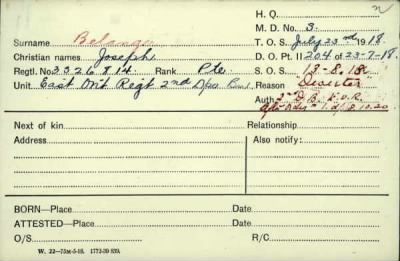 H. Q.
M. D. No. 3.
Surname Belanger T. O. S. July 23rd 1918
Christian names Joseph D. O. Pt. II 204 of 23-7-18.
Regtl. No. 3326814 Rank Pte S. O. S. 18-8.18
Unit. East Ont Regt 2nd Dpo. Bn. Reason Deserter
Auth.
Next of kin Relationship
Address Also notify:
BORN—Place Date
ATTESTED—Place Date
O/S R/C
W. 22—75M-5-18. 1772-39 839.